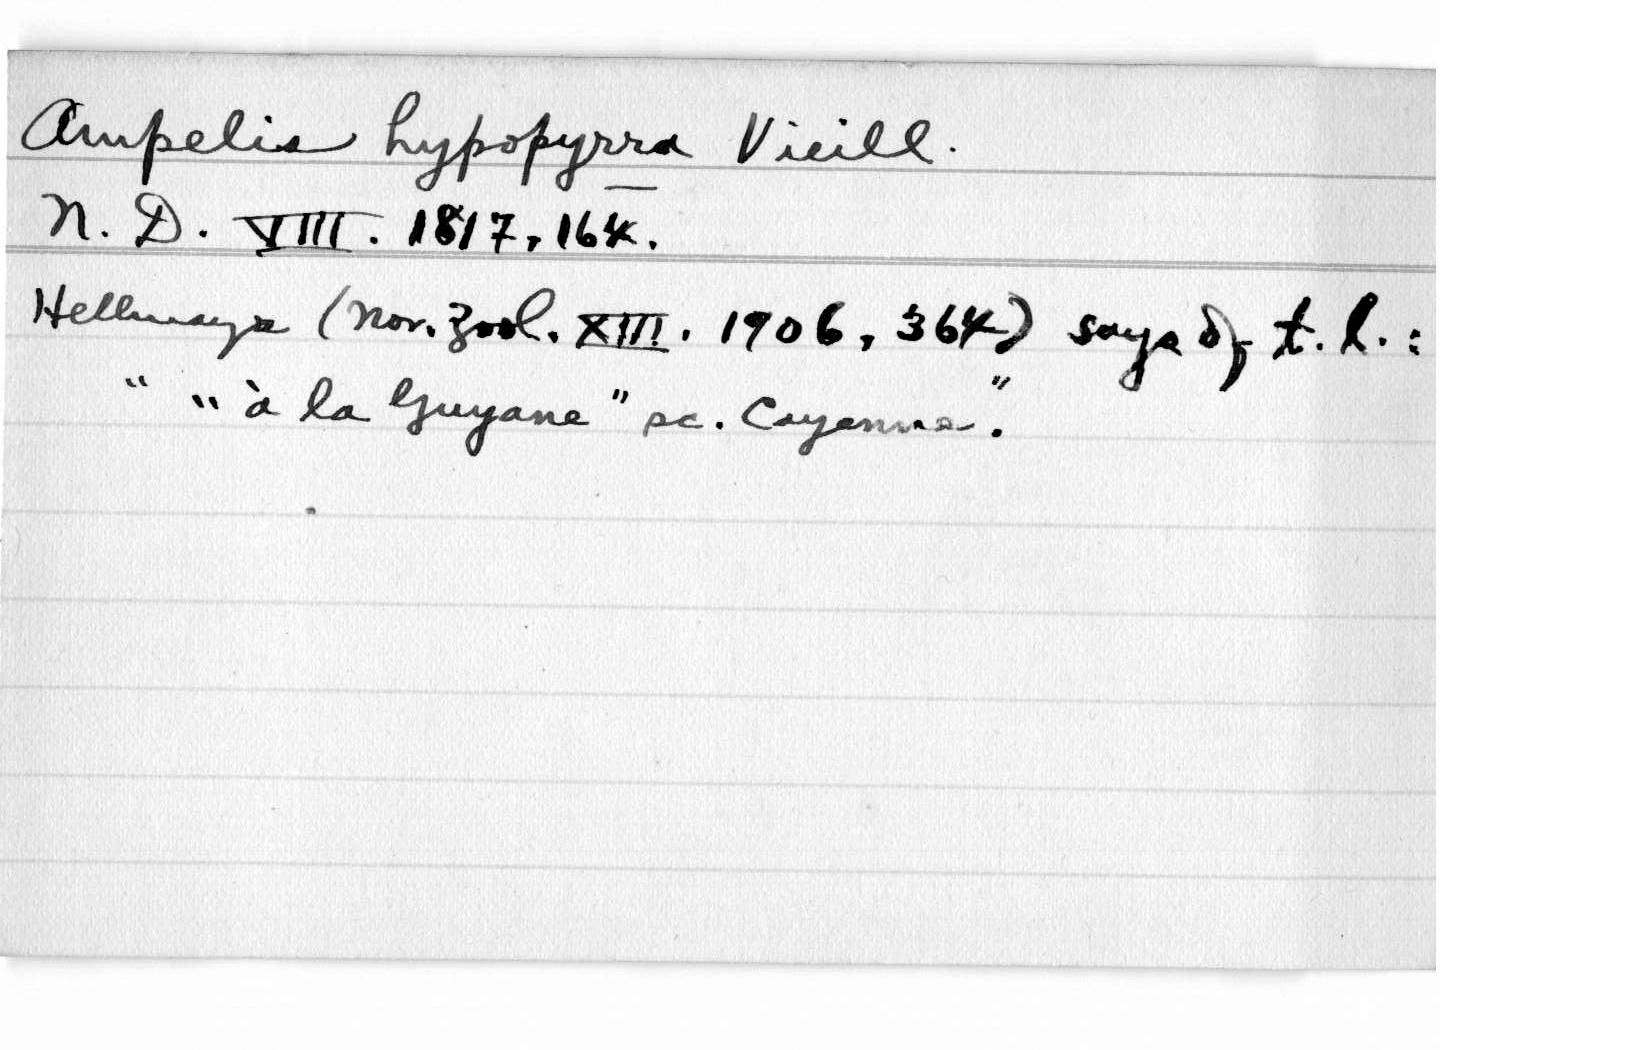 Ampelis hypopyrra Vieill.
N. D. VIII. 1817, 164.
Hellmayr (Nov. Zool. XIII. 1906, 364) says of t. l. :
" "à la Guyane" sc. Cayenne."